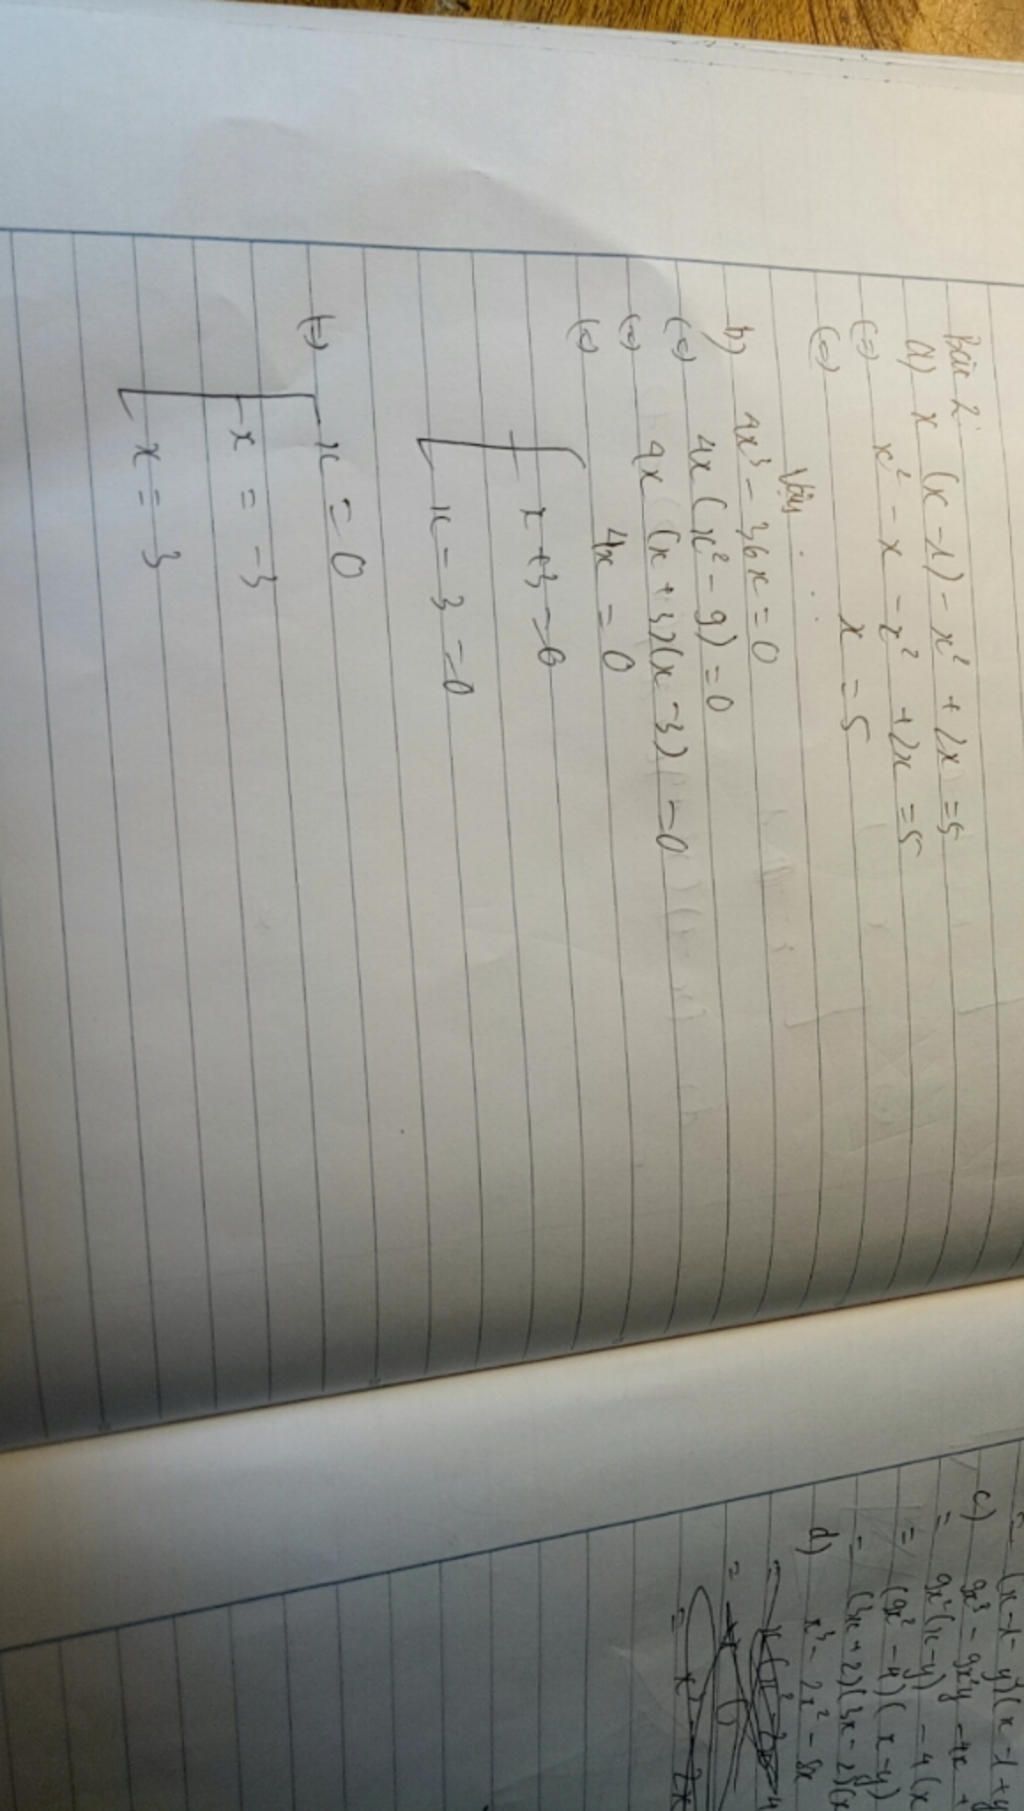 Bài 2
a) x (x - 1) - x² + 2x = 5
(=) x² - x - x² + 2x = 5
(=) x = 5
Vậy ...
b) 4x³ - 36x = 0
(=) 4x (x² - 9) = 0
(=) 4x (x + 3)(x - 3) = 0
(=) 4x = 0
x + 3 = 0
x - 3 = 0
(=) x = 0
x = -3
x = 3
(x - 1 - y)(x - 1 + y
c) 9x³ - 9x²y - 4x +
= 9x²(x - y) - 4(x
= (9x² - 4)(x - y)
= (3x + 2)(3x - 2)(x
d) x³ - 2x² - 8x